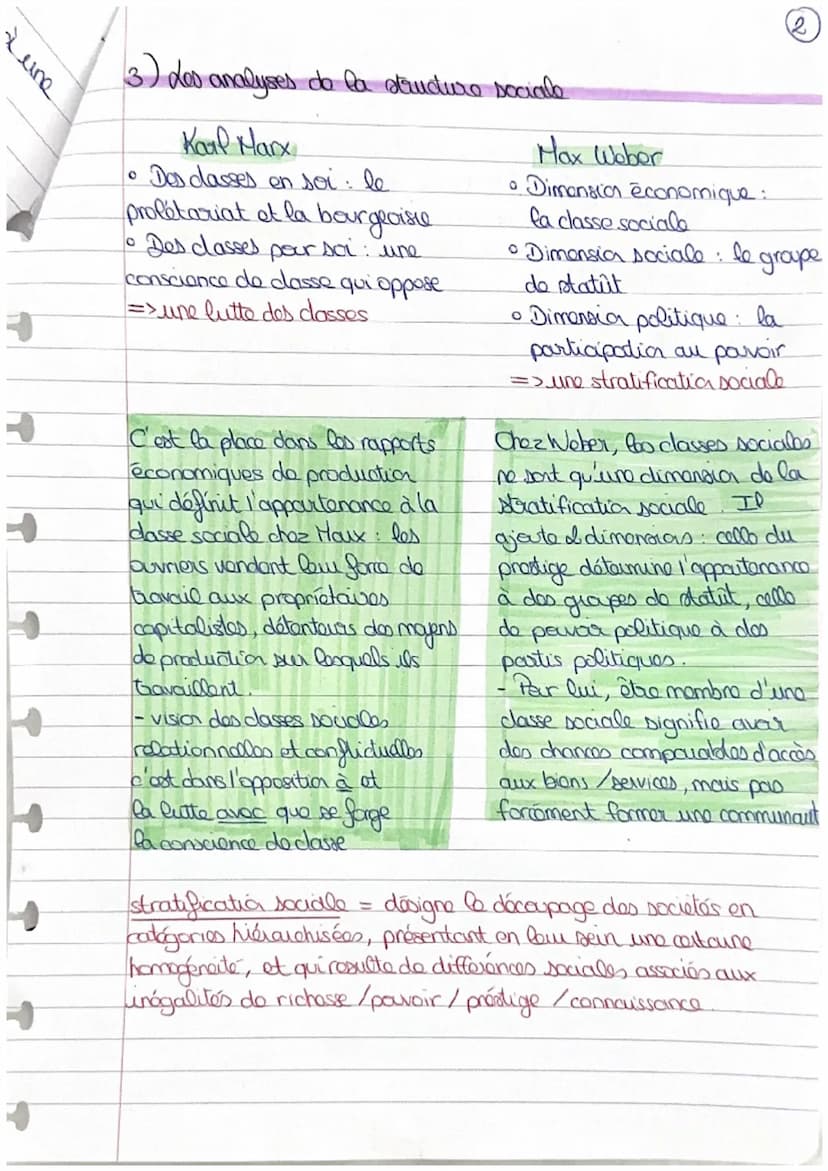 2
L'une
3) Les analyses de la structure sociale
Karl Marx
° Des classes en soi : le
prolétariat et la bourgeoisie
° Des classes pour soi : une
conscience de classe qui oppose
=> une lutte des classes
Max Weber
° Dimension économique :
la classe sociale
° Dimension sociale : le groupe
de statût
° Dimension politique : la
participation au pouvoir
=> une stratification sociale
C'est la place dans les rapports
économiques de production
qui définit l'appartenance à la
classe sociale chez Marx : les
ouvriers vendant leur force de
travail aux propriétaires
capitalistes, détenteurs des moyens
de production sur lesquels ils
travaillent.
- vision des classes sociales
relationnelles et conflictuelles
c'est dans l'opposition à et
la lutte avec que se forge
la conscience de classe
Chez Weber, les classes sociales
ne sont qu'une dimension de la
stratification sociale. Il
ajoute 2 dimensions : celle du
prestige détermine l'appartenance
à des groupes de statût, celle
de pouvoir politique à des
partis politiques.
- Pour lui, être membre d'une
classe sociale signifie avoir
des chances comparables d'accès
aux biens / services, mais pas
forcément former une communaut
stratification sociale = désigne le découpage des sociétés en
catégories hiérarchisées, présentant en leur sein une certaine
homogénéité, et qui résulte de différences sociales associés aux
inégalités de richesse / pouvoir / préstige / connaissance.